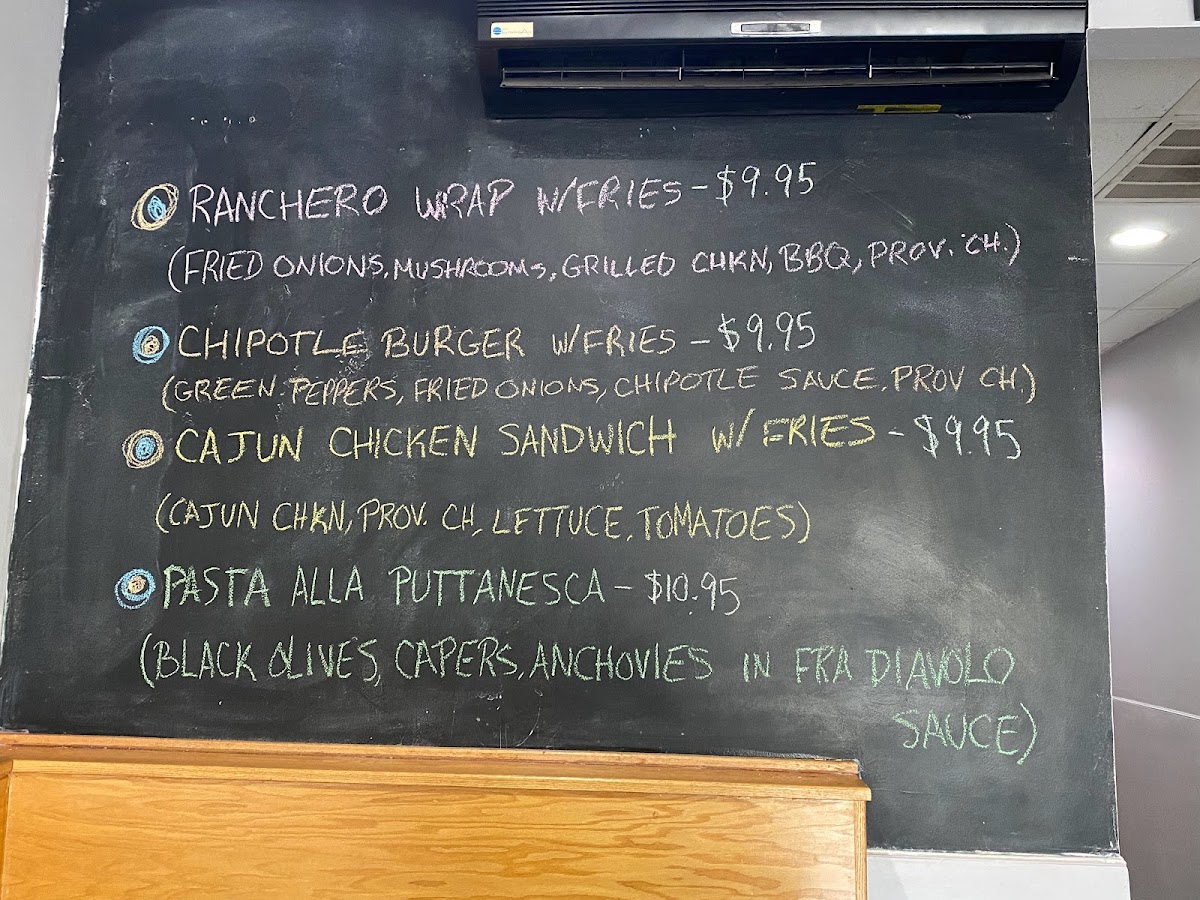 RANCHERO WRAP W/FRIES - $9.95
(FRIED ONIONS, MUSHROOMS, GRILLED CHKN, BBQ, PROV. CH.)
CHIPOTLE BURGER W/FRIES - $9.95
(GREEN PEPPERS, FRIED ONIONS, CHIPOTLE SAUCE, PROV CH.)
CAJUN CHICKEN SANDWICH W/ FRIES - $9.95
(CAJUN CHKN, PROV. CH, LETTUCE, TOMATOES)
PASTA ALLA PUTTANESCA - $10.95
(BLACK OLIVES, CAPERS, ANCHOVIES IN FRA DIAVOLO
SAUCE)